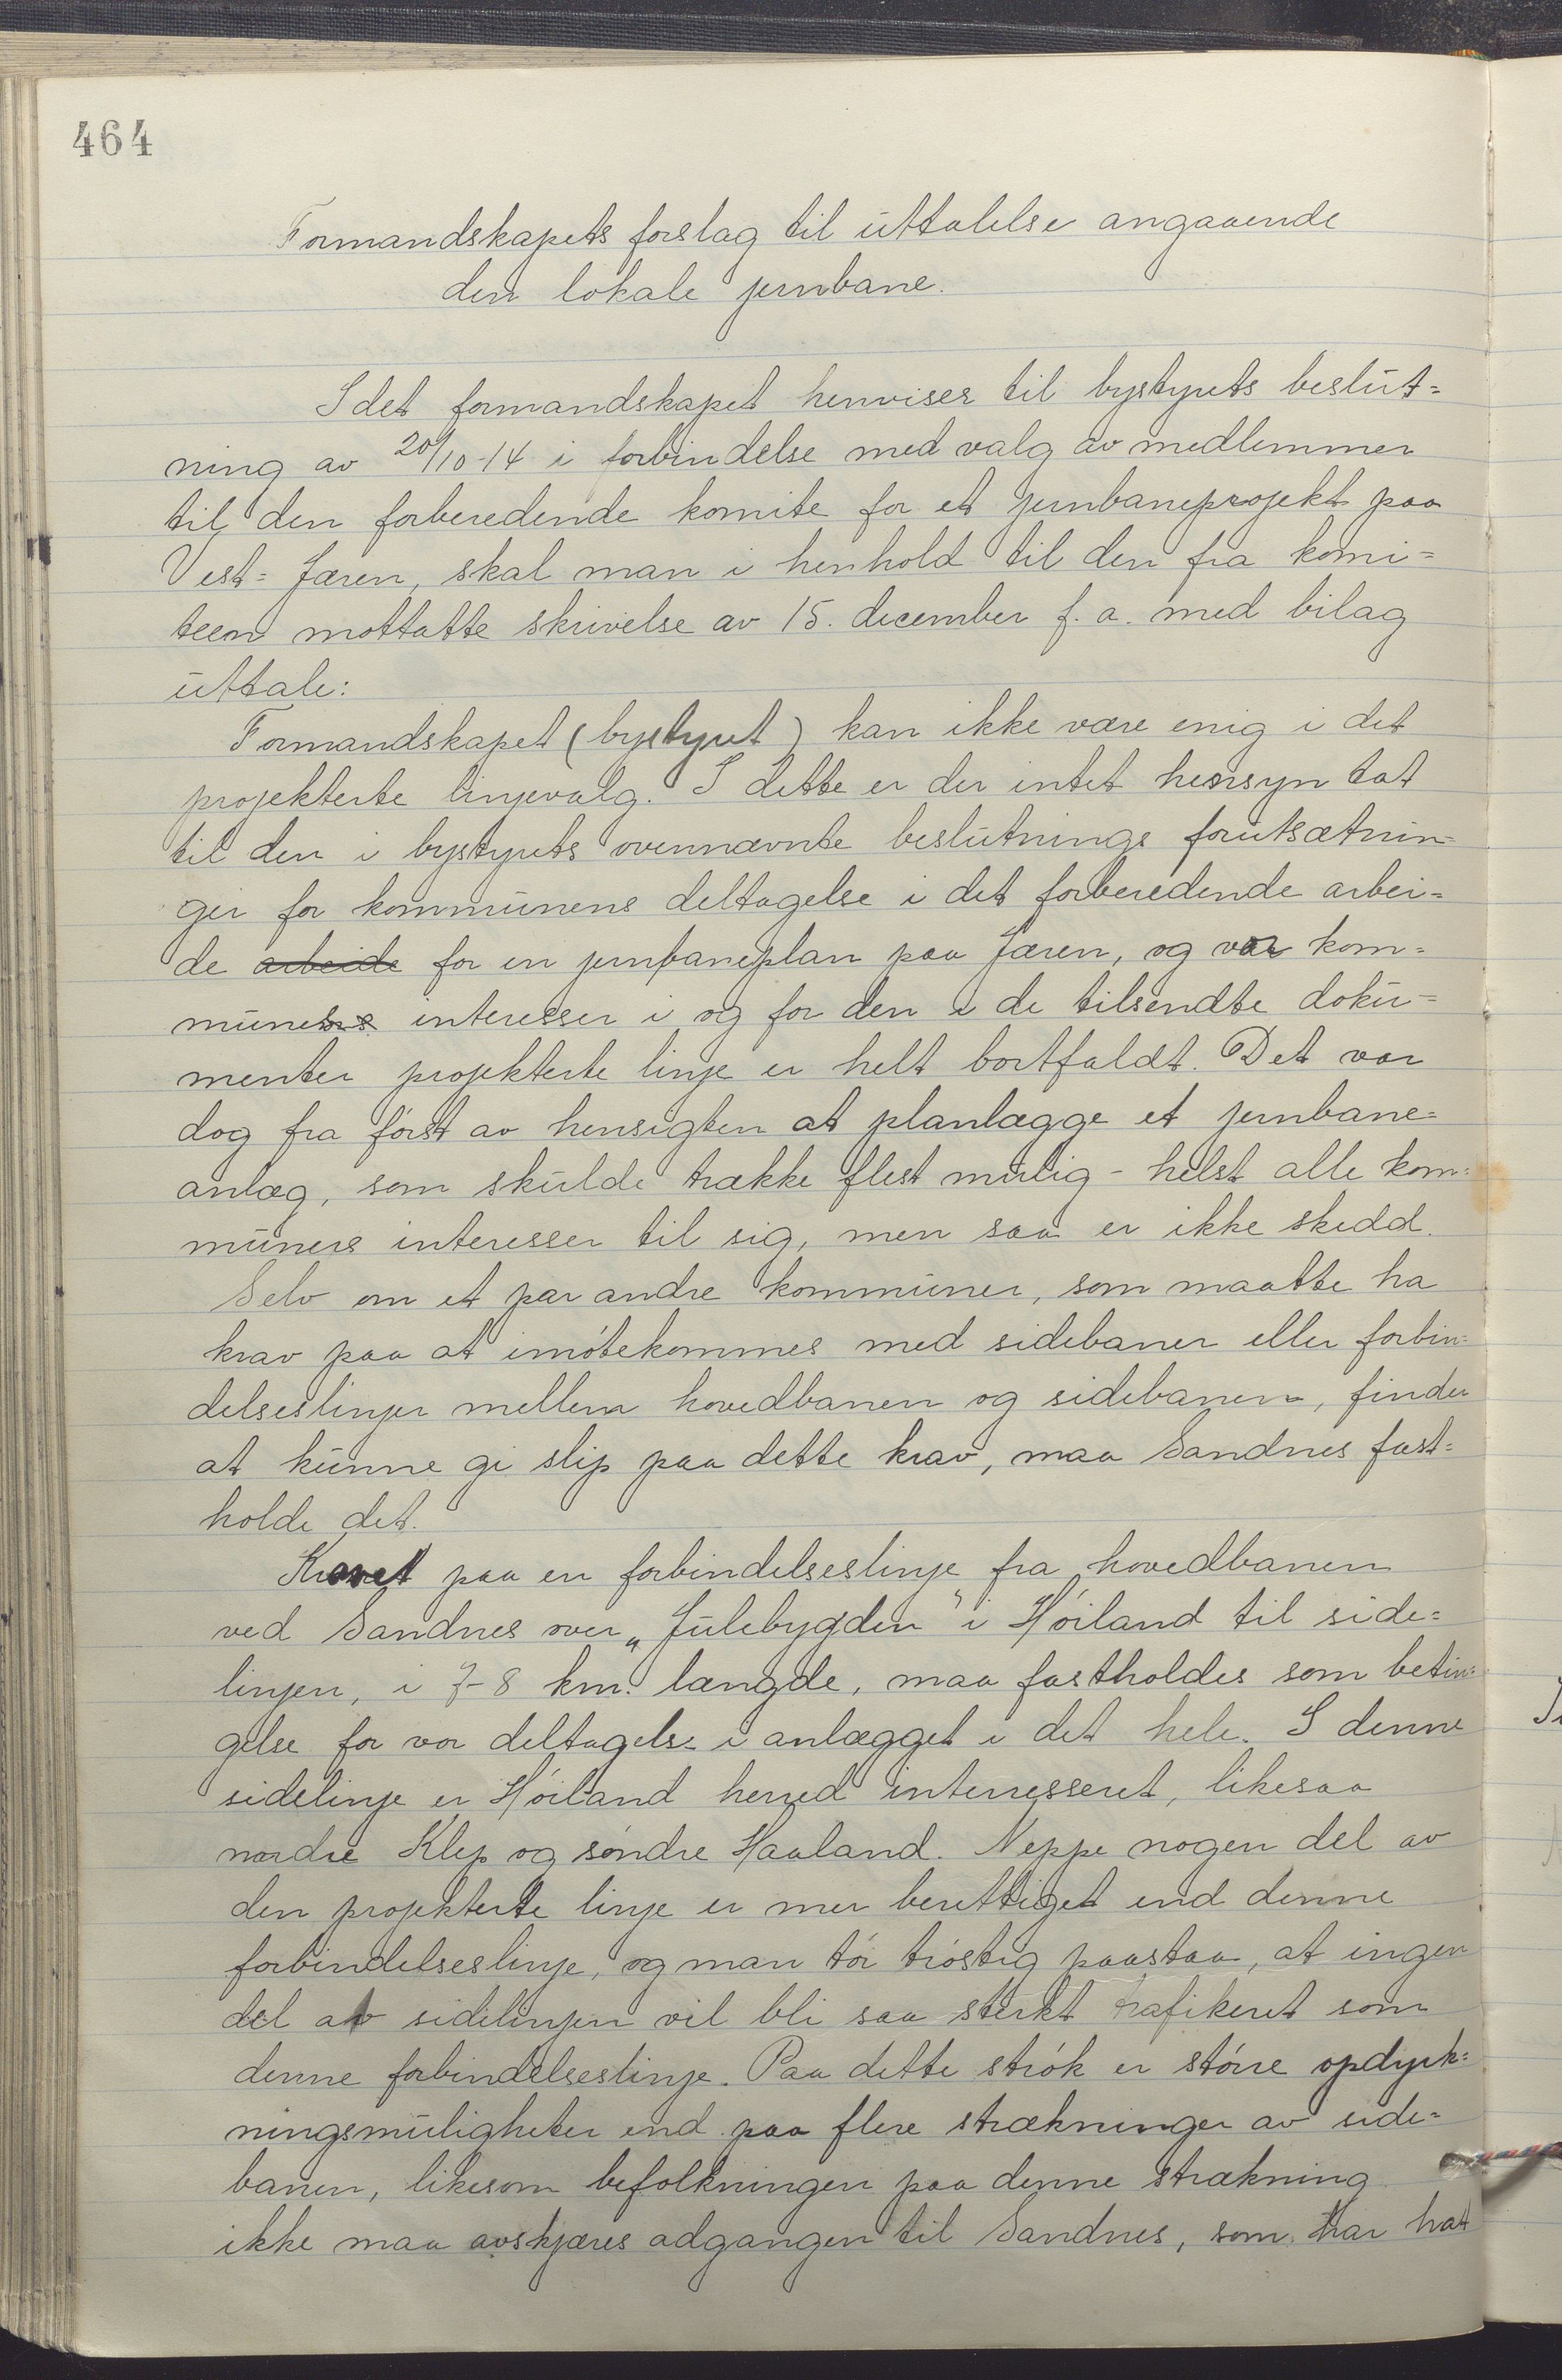 464
Formandskapets forslag til uttalelse angaaende
den lokale jernbane.
Idet formandskapet henviser til bystyrets beslut=
ning av 20/10-14 i forbindelse med valg av medlemmer
til den forberedende komite for et jernbaneprojekt paa
Vest=Jæren, skal man i henhold til den fra komi=
teen mottatte skrivelse av 15. december f. a. med bilag
uttale:
Formandskapet (bystyret) kan ikke være enig i det
projekterte linjevalg. I dette er der intet hensyn tat
til den i bystyrets ovennævnte beslutnings forutsætnin=
ger for kommunens deltagelse i det forberedende arbei=
de arbeide for en jernbaneplan paa Jæren, og vor kom=
munes interesser i og for den i de tilsendte doku=
menter projekterte linje er helt bortfaldt. Det var
dog fra först av hensigten at planlægge et jernbane=
anlæg, som skulde trække flest mulig - helst alle kom=
muners interesser til sig, men saa er ikke skedd.
Selv om et par andre kommuner, som maatte ha
krav paa at imötekommes med sidebaner eller forbin=
delseslinjer mellem hovedbanen og sidebanen, finder
at kunne gi slip paa dette krav, maa Sandnes fast=
holde det.
Kravet paa en forbindelseslinje fra hovedbanen
ved Sandnes over „Julebygden" i Höiland til side=
linjen, i 7-8 km. længde, maa fastholdes som betin=
gelse for vor deltagelse i anlægget i det hele. I denne
sidelinje er Höiland herred interresseret, likesaa
nordre Klep og söndre Haaland. Neppe nogen del av
den projekterte linje er mer berettiget end denne
forbindelseslinje, og man tör tröstig paastaa, at ingen
del av sidelinjen vil bli saa sterkt trafikeret som
denne forbindelseslinje. Paa dette strök er större opdyrk=
ningsmuligheter end paa flere strækninger av side=
banen, likesom befolkningen paa denne strækning
ikke maa avskjæres adgangen til Sandnes, som har hat